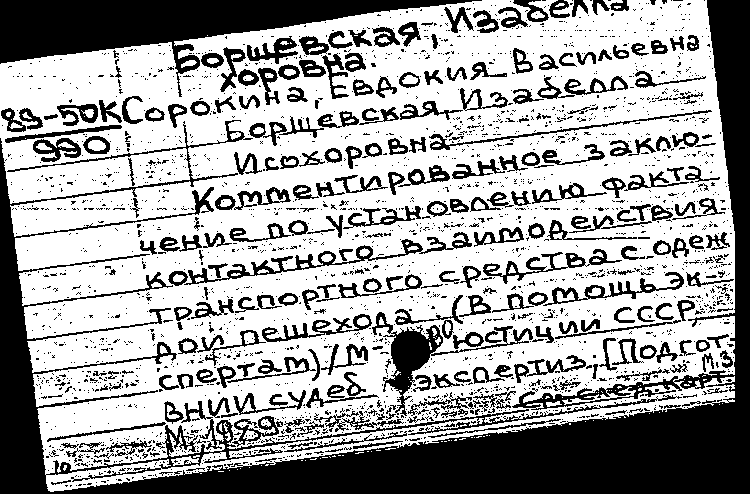 Борщевская, Изабелла
хоровна.
89-50К Сорокина, Евдокия Васильевна
990 Борщевская, Изабелла
Исохоровна
Комментированное заклю-
чение по установлению факта
контактного взаимодействия
транспортного средства с одеж
дой пешехода. (В помощь эк-
спертам)/М-во юстиции СССР,
ВНИИ судеб экспертиз; [Подгот.
М., 1989
См. след. карт.
10